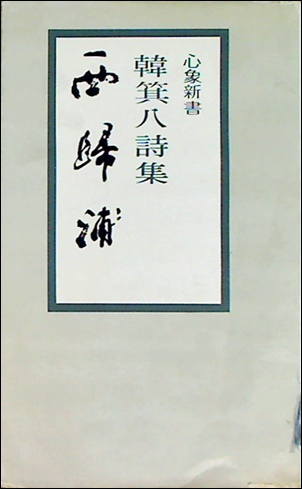 心象新書
韓箕八詩集
西歸浦